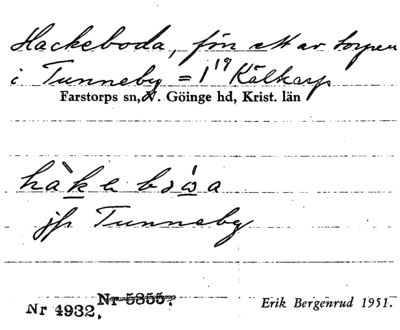 Hackeboda, fön ett av torpen
i Tunneby = 1¹⁹ Kälkarp
Farstorps sn, V. Göinge hd, Krist. län
hàkebωa
jfr Tunneby
Nr 5355?
Nr 4932.
Erik Bergenrud 1951.